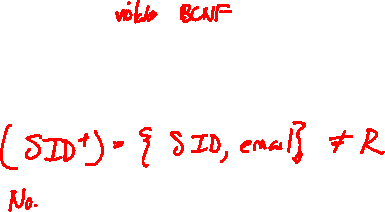 violates BCNF
(SID⁺) = { SID, email} ≠ R
No.